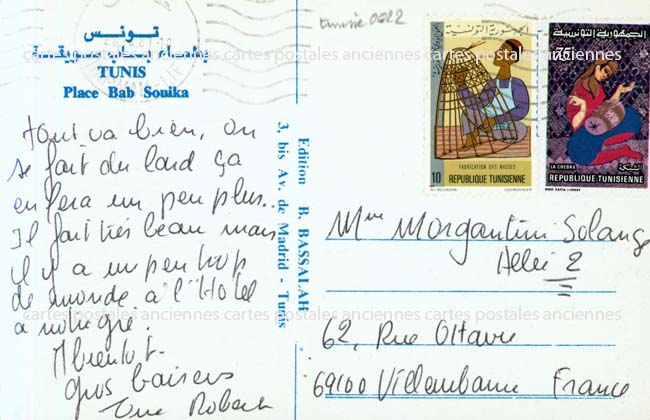 tunisie 0022
تونس
TUNIS
Place Bab Souika
Tout va bien, on
se fait du lard ça
en fera un peu plus..
Il fait très beau mais
il y a un peu trop
de monde à l'Hôtel
à notre gré.
A bientôt.
gros baisers
Robert
Edition B. BASSALAH
3, bis Av. de Madrid - Tunis
الجمهورية التونسية
FABRICATION DES NASSES
10 REPUBLIQUE TUNISIENNE
COURVOISIER
الجمهورية التونسية
LA CHEBKA
الشبكة
REPUBLIQUE TUNISIENNE
Mme Morgantini Solange
62, Rue Octavie
69100 Villeurbanne France
cartes postales anciennes cartes postales anciennes cartes postales anciennes
cartes postales anciennes cartes postales anciennes cartes postales anciennes